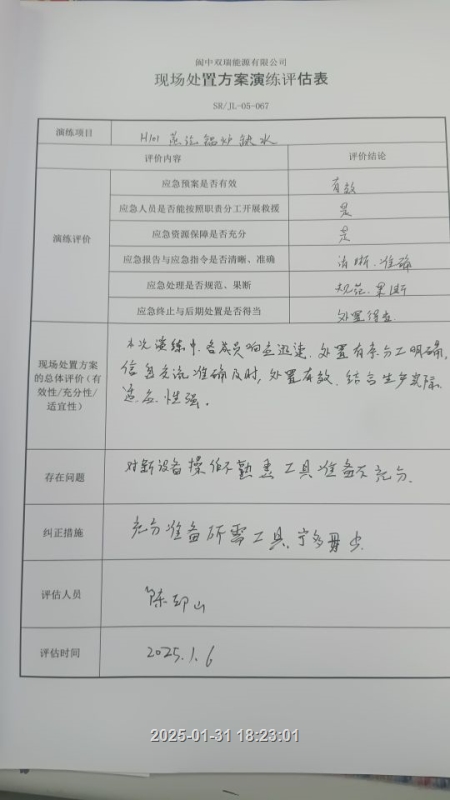 阆中双瑞能源有限公司
现场处置方案演练评估表
SR/JL-05-067
演练项目 H101 蒸汽锅炉缺水
评价内容 评价结论
演练评价
应急预案是否有效 有效
应急人员是否能按照职责分工开展救援 是
应急资源保障是否充分 是
应急报告与应急指令是否清晰、准确 清晰、准确
应急处理是否规范、果断 规范、果断
应急终止与后期处置是否得当 处置得当
现场处置方案
的总体评价(有
效性/充分性/
适宜性)
本次演练中各成员响应迅速,处置有序分工明确,
信息交流准确及时,处置有效,结合生产实际
适应性强。
存在问题 对新设备操作不熟悉 工具准备不充分。
纠正措施 充分准备所需工具,宁多毋少
评估人员 陈
评估时间 2025.1.6
2025-01-31 18:23:01